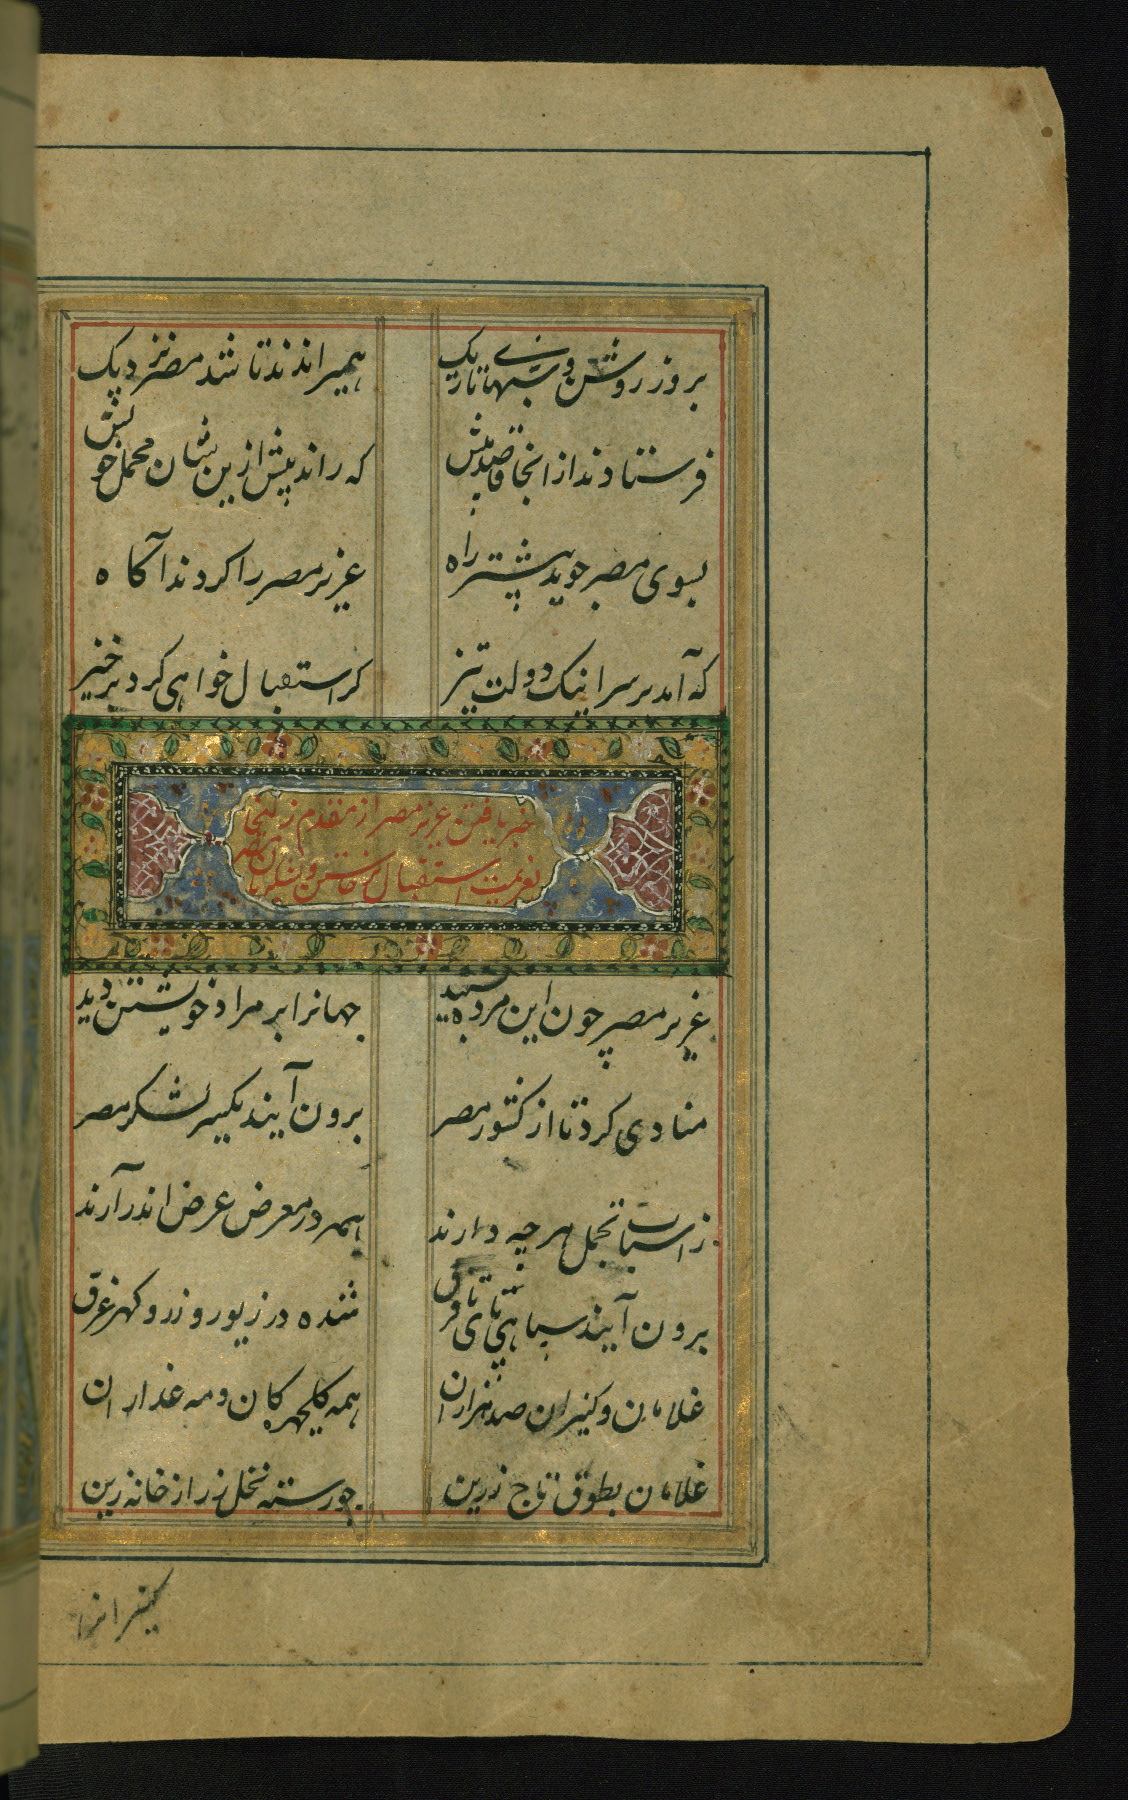 بروز روشن و شبهای تاریک همیراندند تا شد مصر نزدیک
فرستادند از انجا قاصد پیش که راند پیش ازین نشان محمل خویش
بسوی مصر جوید پیشتر راه عزیز مصر را کردند آکاه
که آمد بر سر اینک دولت تیز کر استقبال خواهی کرد برخیز
خبر یافتن عزیز مصر از مقدم زلیخا
بعزیمت استقبال برخاستن و لشکریان
عزیز مصر چون این مرده بشنید جهانرا بر مراد خویشتن دید
منادی کرد تا از کشور مصر برون آیند یکسر لشکر مصر
ز اسباب تجمل هر چه دارند همه در معرض عرض اندر آرند
برون آیند سپاهی پای تا فرق شده در زیور و زر و کهر غرق
غلامان و کنیران صد هزاران همه کلچهرکان و مه عذاران
غلامان بطوق تاج زرین چو رسته نخل زر از خانه زین
کنیزانرا